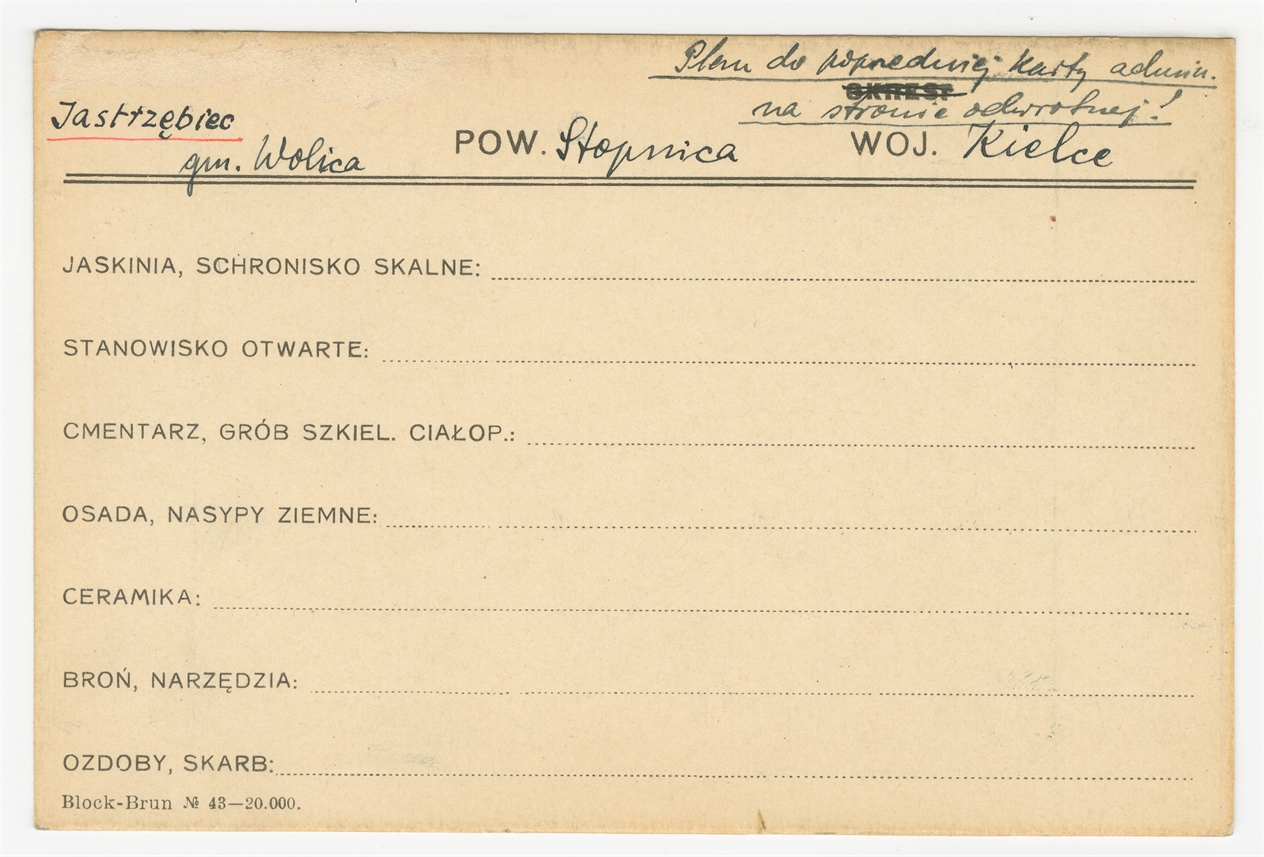 Plan do poprzedniej Karty admin.
OKRES:
na stronie odwrotnej!
Jastrzębiec
gm. Wolica POW. Stopnica WOJ. Kielce
JASKINIA, SCHRONISKO SKALNE:
STANOWISKO OTWARTE:
CMENTARZ, GRÓB SZKIEL. CIAŁOP.:
OSADA, NASYPY ZIEMNE:
CERAMIKA:
BROŃ, NARZĘDZIA:
OZDOBY, SKARB:
Block-Brun № 43—20.000.